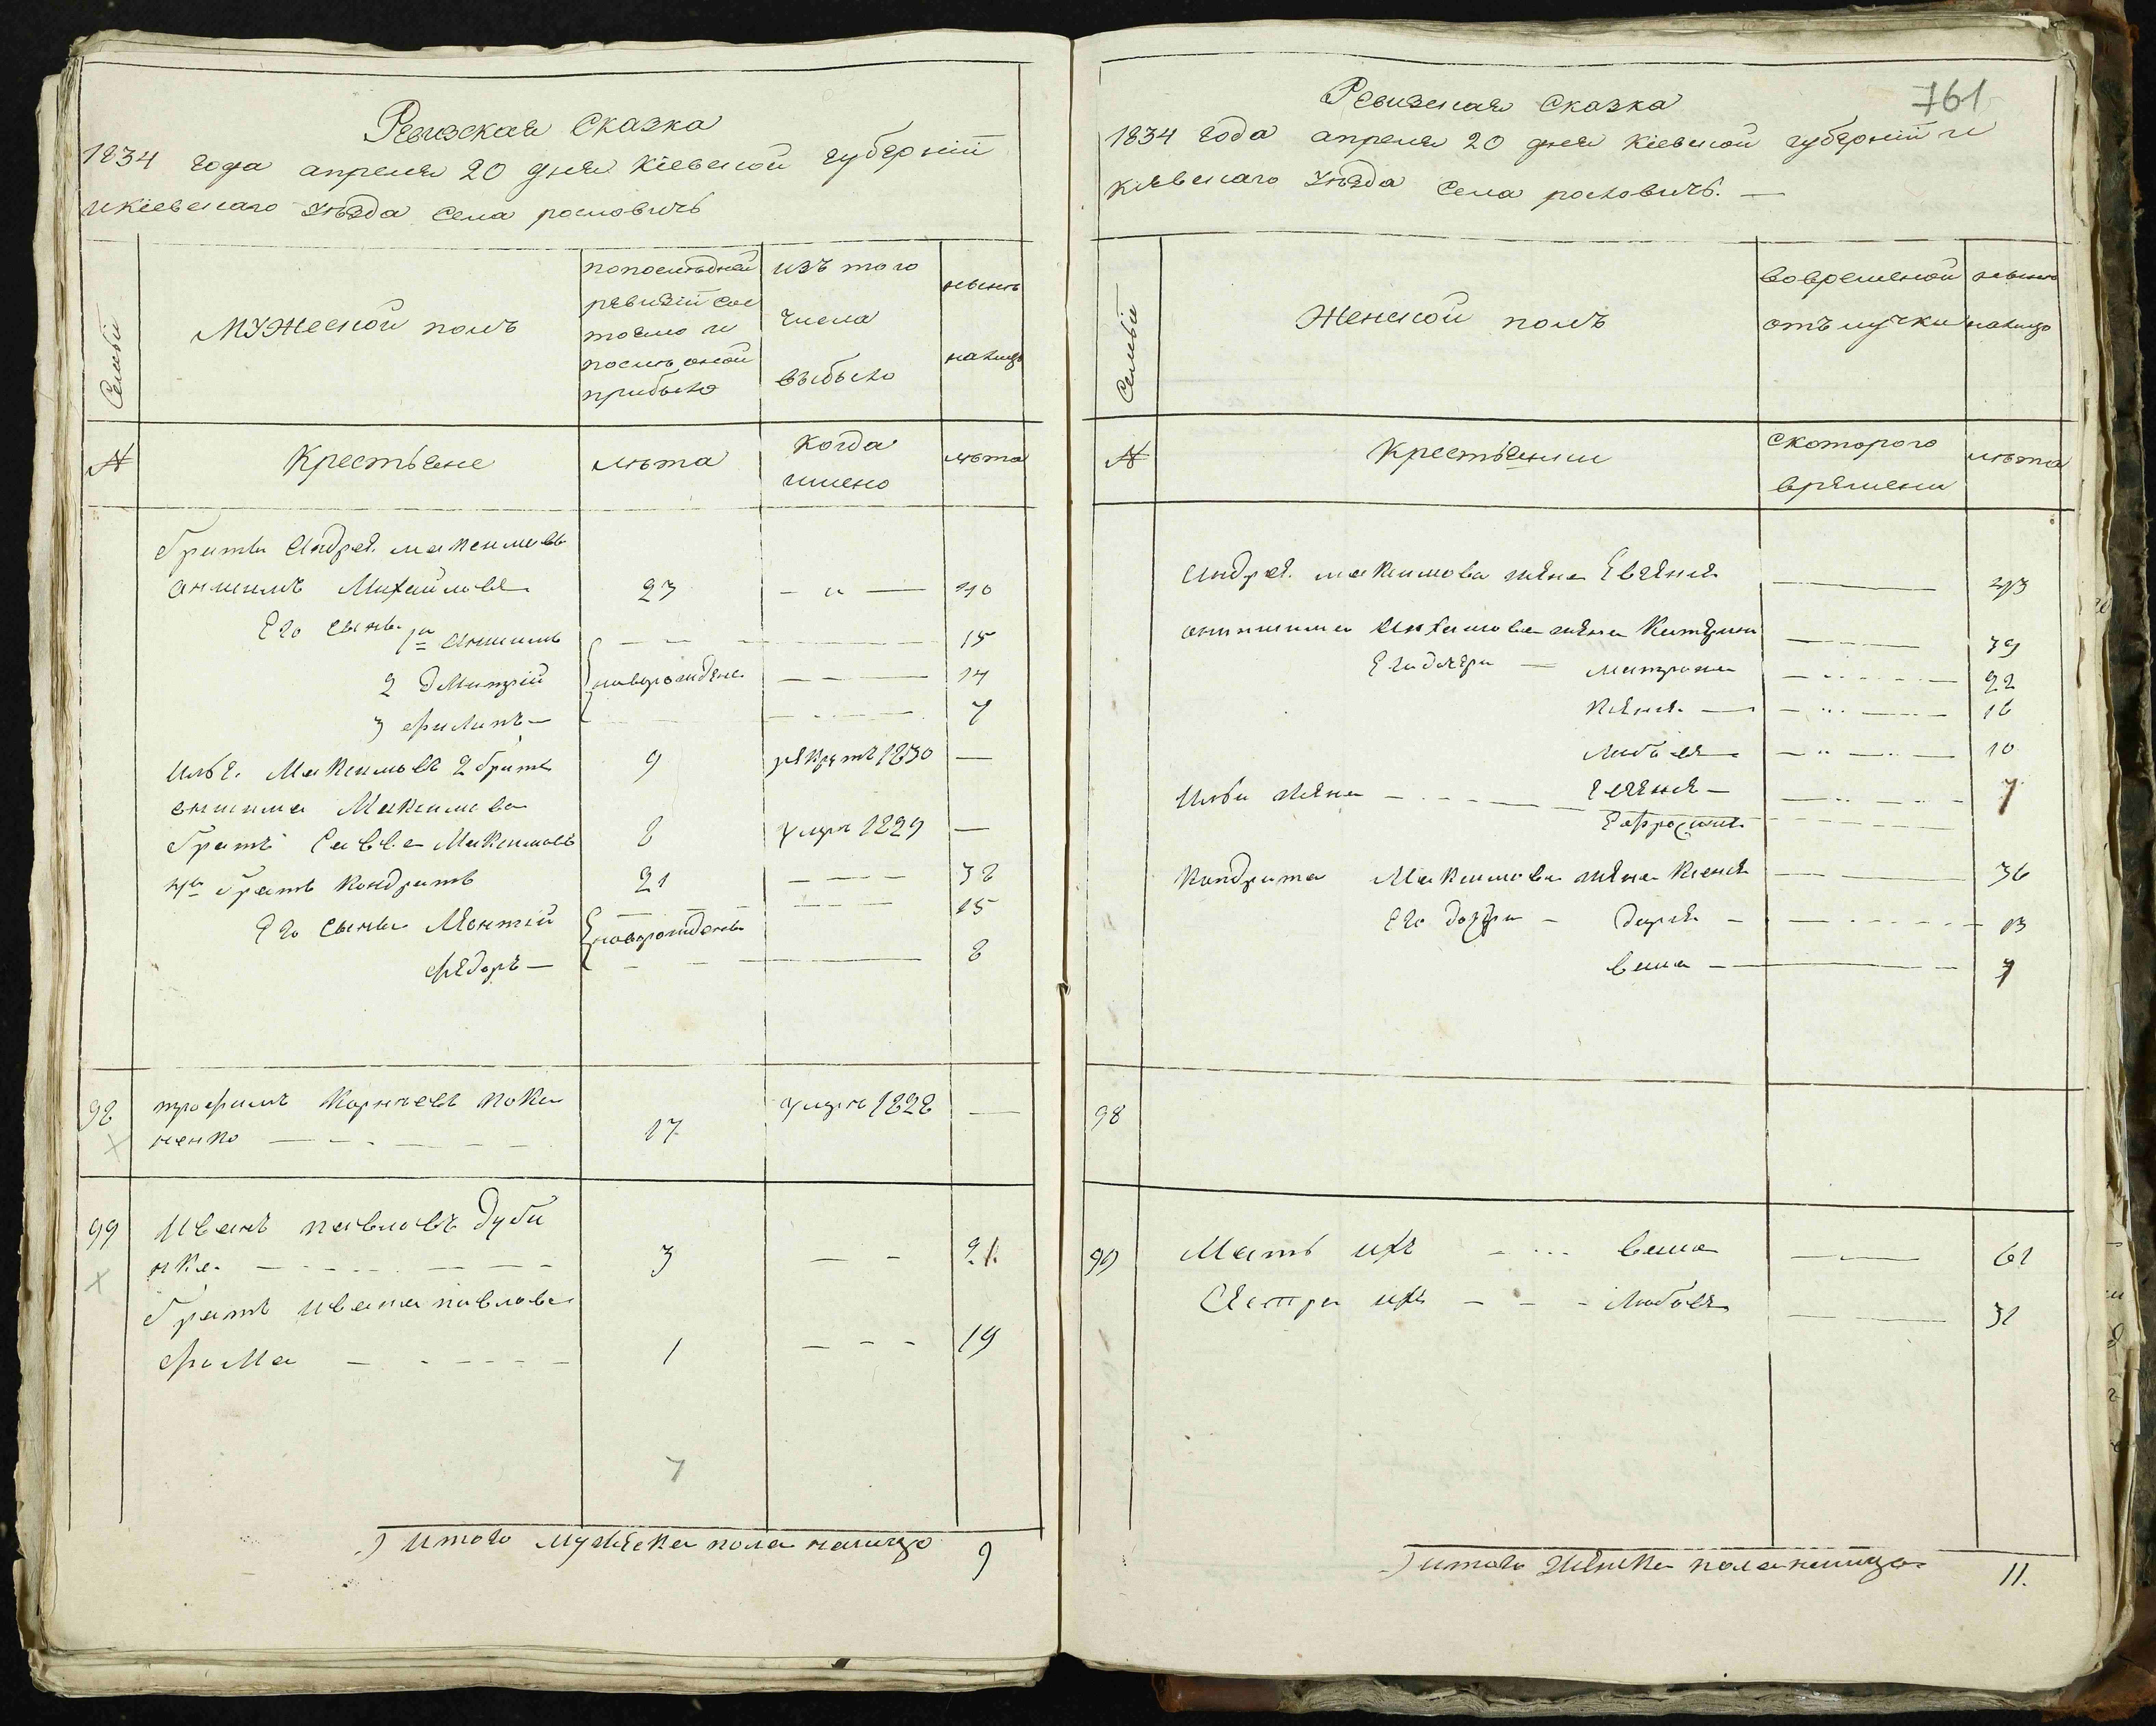 Ревизская Сказка
1834 года апреля 20 дня Кіевской губерніи
и Кіевскаго Уѣзда Села рословичъ
Семьи
Мужеской полъ
попоследней ревизіи состояло и послѣ оной прибыло
изъ того числа выбыло
нынѣ налицо
№
Крестьяне
лѣта
когда имено
лѣта
братъ Андрея Максимова
Онисимъ Михайловъ 23 40
Его сыновья 1й Онисимъ 15
2 Дмитрій новорожденые 14
3 Филипъ 7
Илья Максимовъ 2 братъ 9 рекрутъ 1830 —
Онисима Максимова
братъ Савва Максимовъ 8 умре 1829 —
4й братъ Кондратъ 21 38
Его сынъ Леонтій новорожденые 15
Федоръ 8
98 трофимъ Корнѣевъ Поке
ненко 17 умре 1828 —
99 Иванъ павловъ Дуби
нка 3 21
братъ ивана павлова
Фома 1 19
7
Итого мужеска пола налицо 9
761
Ревизская Сказка
1834 года апреля 20 дня Кіевской губерніи и
Кіевскаго Уѣзда Села рословичъ. —
Семьи
Женской полъ
во временной отълучки
нынѣ налицо
№
Крестьянки
скоторого времени
лѣта
Андрея Максимова жена Евгения 43
Онисима жена Катерина 39
Его дочери — Матрона 22
Ксения 16
Любовь 10
Ильи жена 7
Ефросинія
Кондрата Максимова жена Ксения 36
Его дочери — Дарья 13
Васса 7
98
99 Мать ихъ Васса 61
Сестра ихъ Любовь 31
итого женска пола налицо 11.